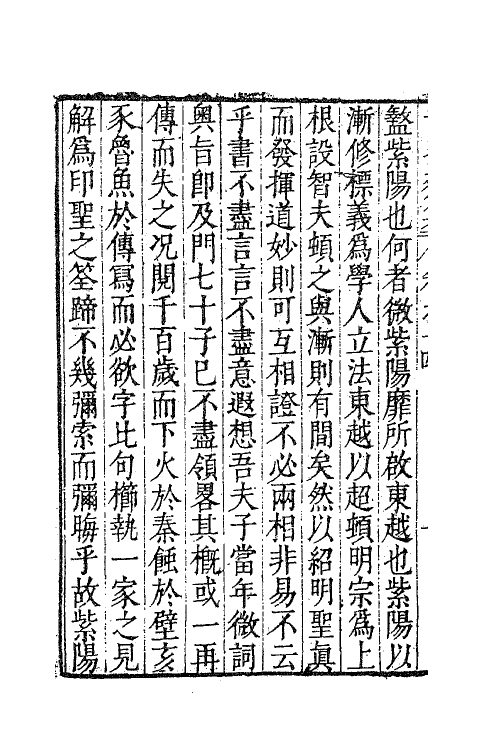 盩紫陽也何者微紫陽靡所啟東越也紫陽以
漸修標義爲學人立法東越以超頓明宗爲上
根設智夫頓之與漸則有間矣然以紹明聖眞
而發揮道妙則可互相證不必兩相非易不云
乎書不盡言言不盡意遐想吾夫子當年微詞
奥旨卽及門七十子已不盡領畧其槪或一再
傳而失之况閱千百歲而下火於秦蝕於壁亥
豕魯魚於傳冩而必欲字比句櫛執一家之見
解爲印聖之筌蹄不幾彌索而彌晦乎故紫陽